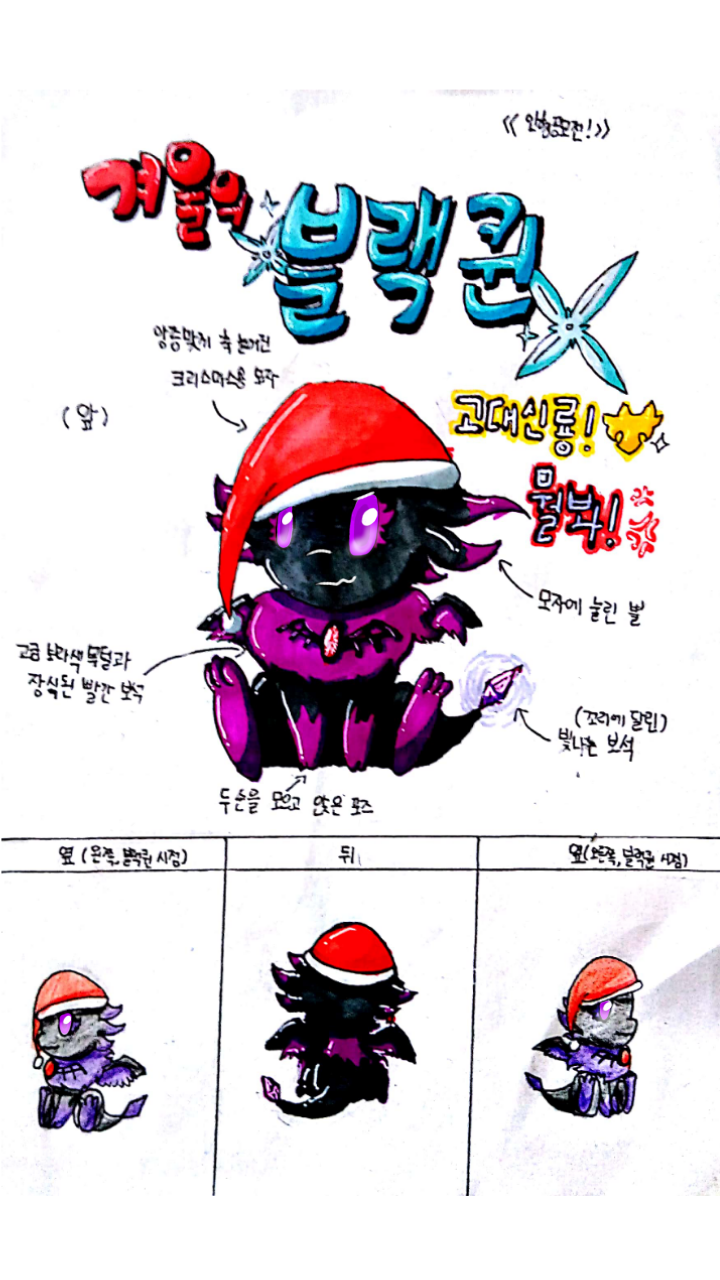 《 인형공모전! 》
겨울의
블랙퀸
앙증맞게 축 늘어진
크리스마스용 모자
(앞)
고대신룡!
뭘봐!
모자에 눌린 뿔
고급 보라색 목털과
장식된 빨간 보석
(꼬리에 달린)
빛나는 보석
두손을 모으고 앉은 포즈
옆 (왼쪽, 블랙퀸 시점)
뒤
옆 (오른쪽, 블랙퀸 시점)